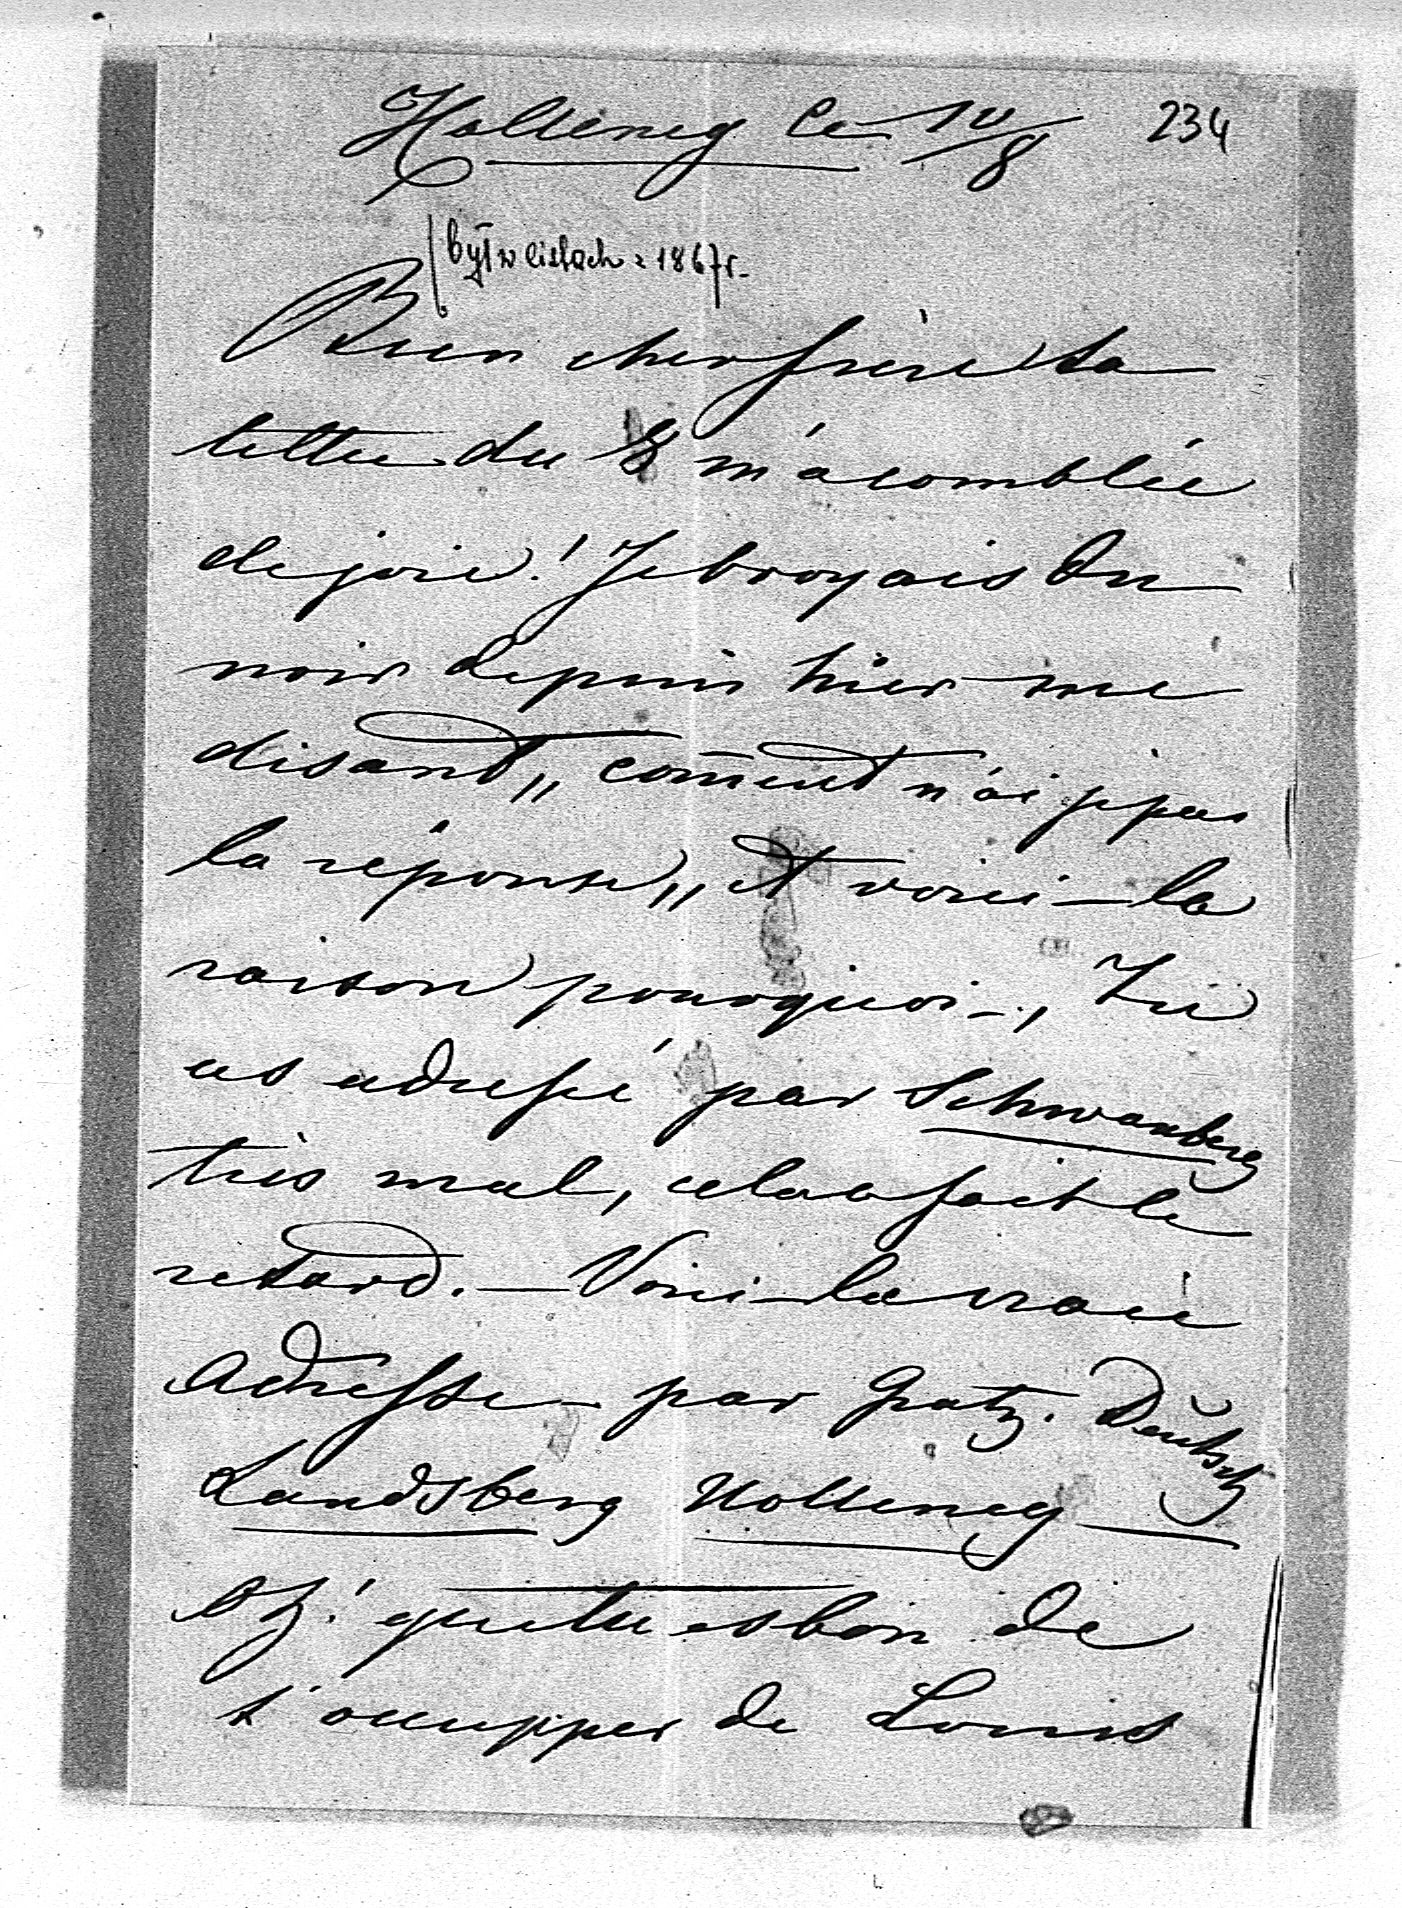 Hollenegg le 10/8
234
był w listach z 1867 r.
Bien cher frère ta
lettre du 8 m'a comblée
de joie! Je broyais du
noir depuis hier me
disant „ com̄ent n'ai je pas
la réponse „ et voici – la
raison pourquoi –, Tu
as adressé par Schwanberg
très mal, cela a fait le
retard. – Voici – la vraie
adresse – par Gratz. Deutsch
Landsberg Hollenegg –
Oh! que tu es bon de
t'occupper de Louis